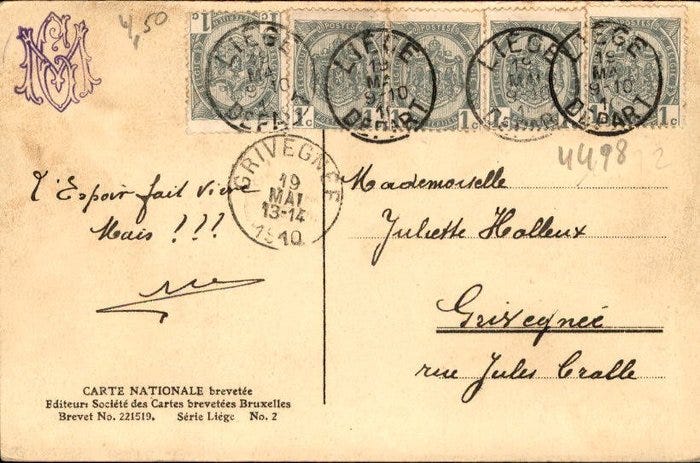 4,50
POSTES POSTES POSTES POSTES
1c 1c 1c 1c 1c
LIÉGE
19
MAI
9-10
DÉPART
LIÉGE
19
MAI
9-10
DÉPART
LIÉGE
19
MAI
9-10
DÉPART
LIÉGE
19
MAI
9-10
DÉPART
4498 2
GRIVEGNÉE
19
MAI
13-14
1910
L'Espoir fait vivre
Mais !!!
Mademoiselle
Juliette Halleux
Grivegnée
rue Jules Cralle
CARTE NATIONALE brevetée
Editeur: Société des Cartes brevetées Bruxelles
Brevet No. 221519. Série Liége No. 2